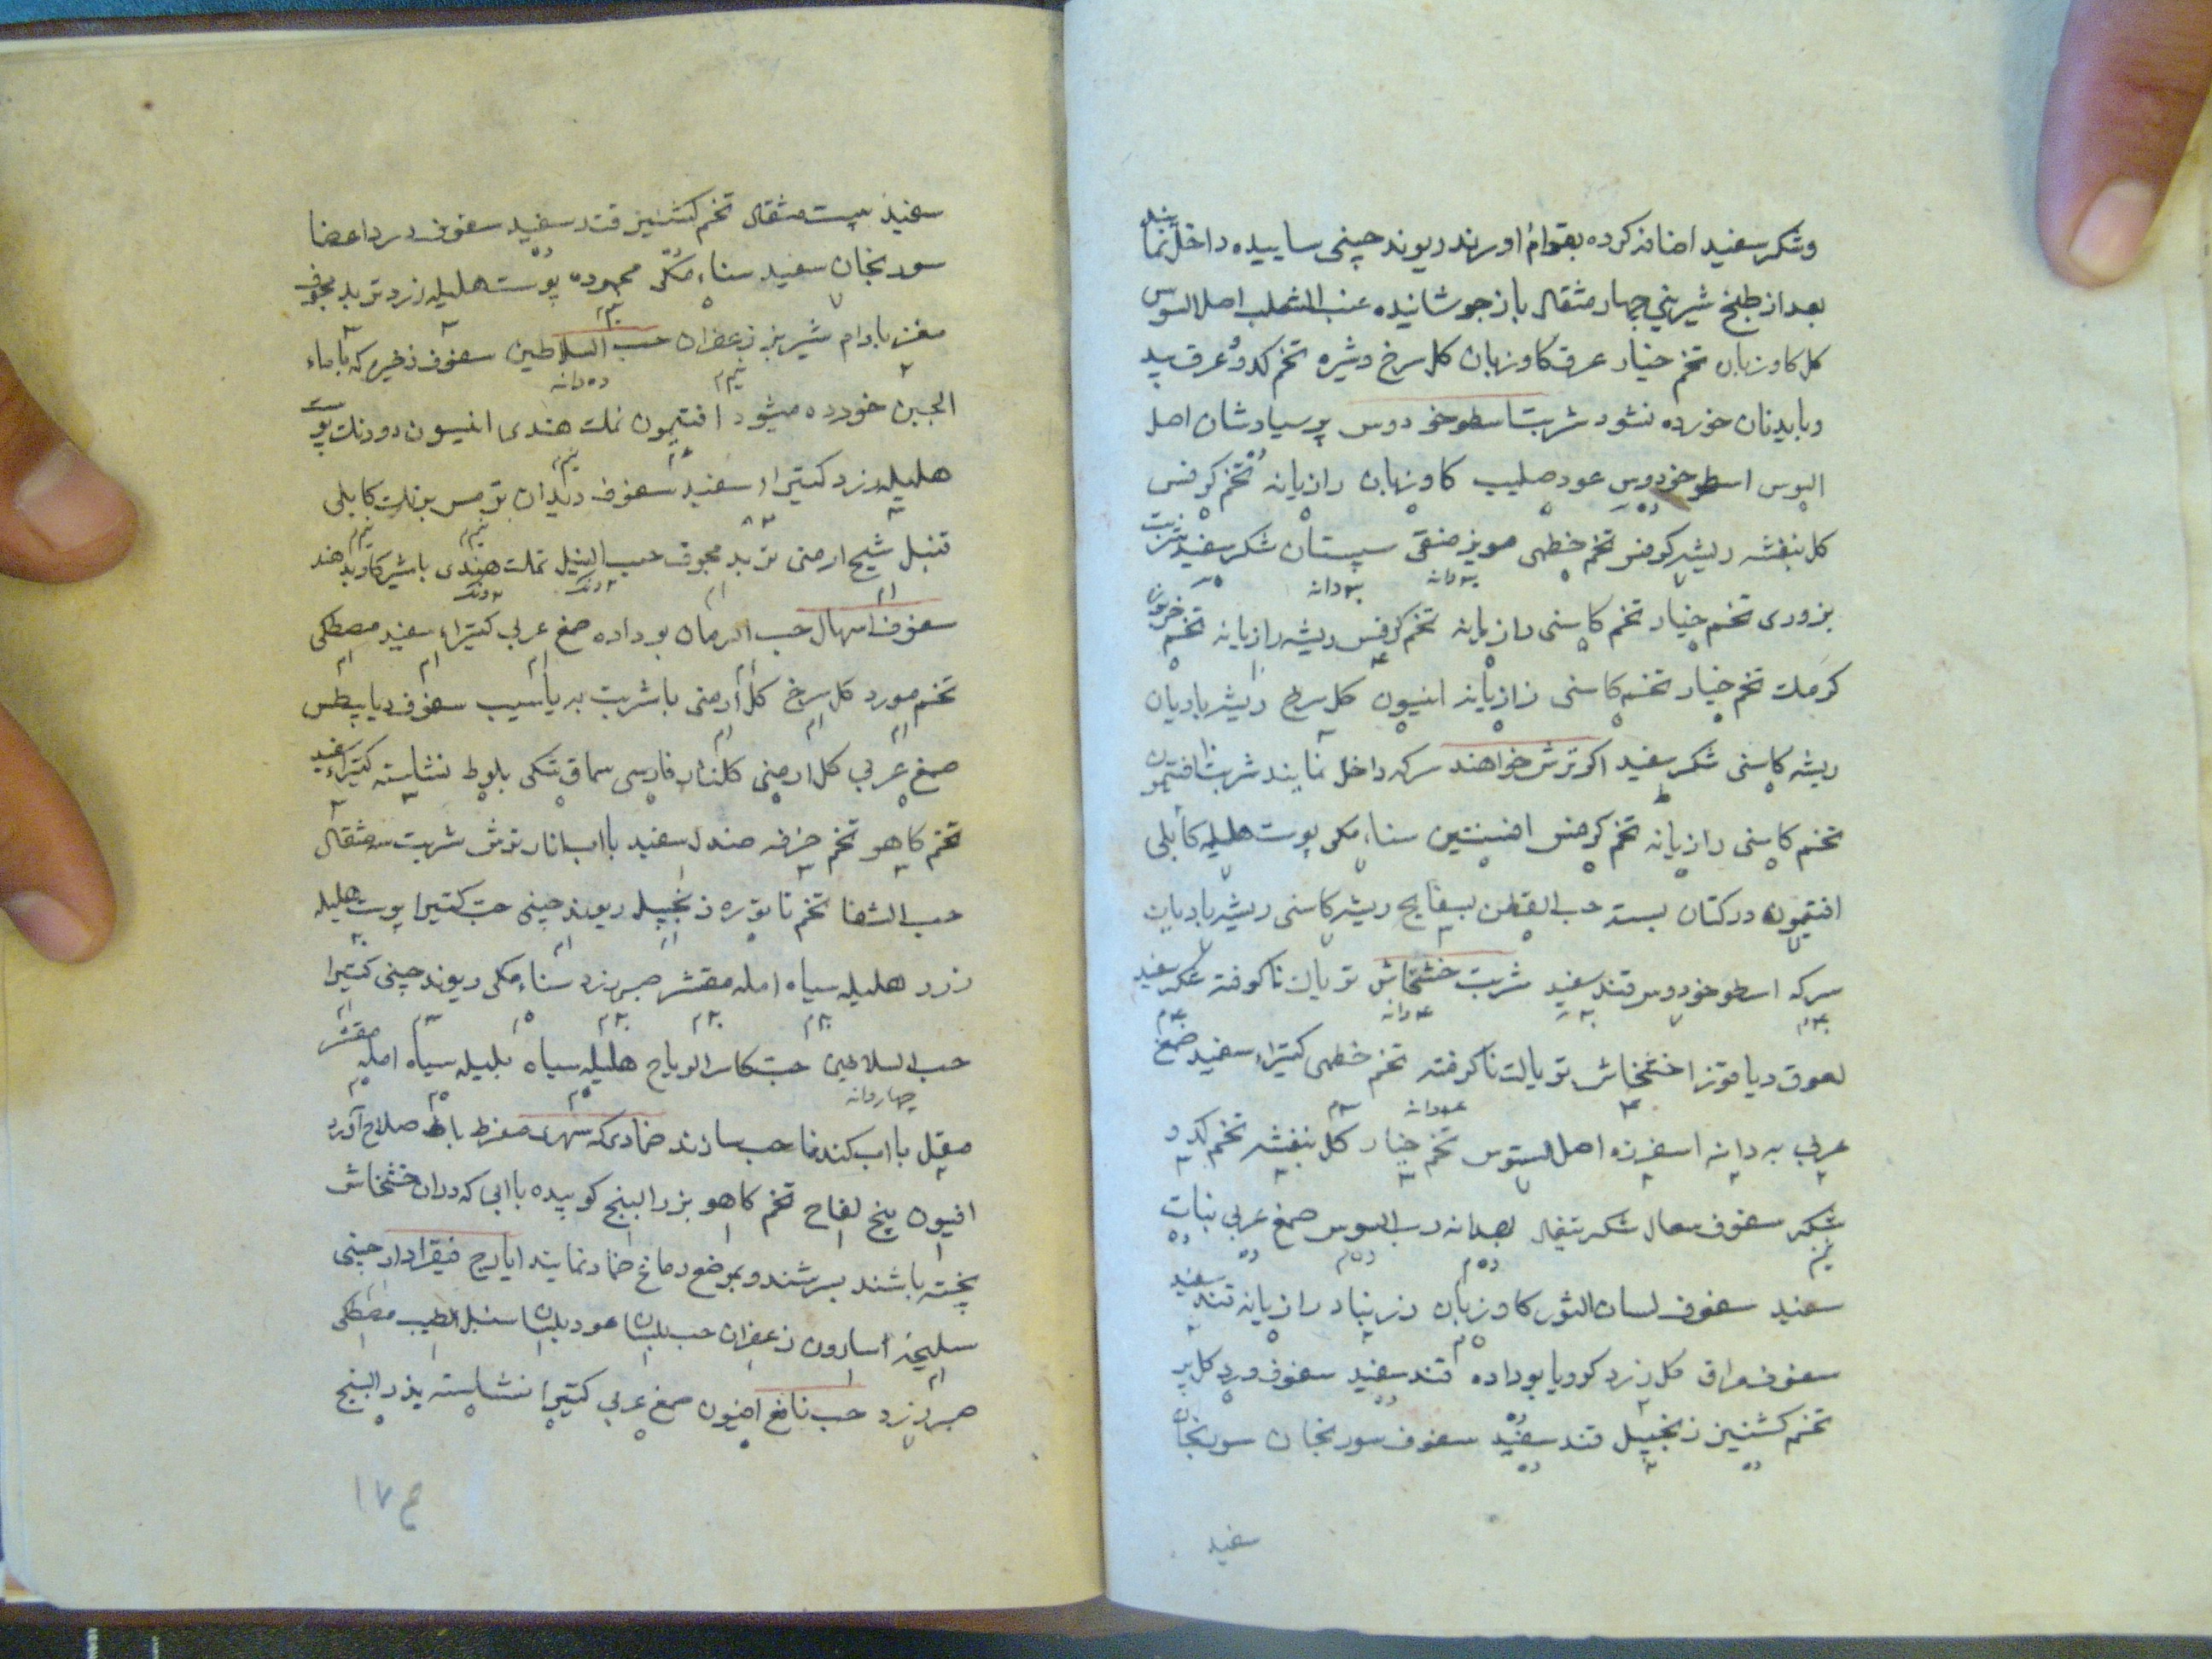 وشکر سفید اضافه کرده بقوام اورند ریوند چینی ساییده داخل نمایند
بعد از طبخ شیرینی چهار مثقال باز جوشانیده عنب الثعلب اصل السوس
کل کاوزبان تخم خیار عرق کاوزبان کل سرخ وشیره تخم کدو وعرق بید
وبایدنان خورده نشود شربت اسطوخودوس پرسیاوشان اصل
السوس اسطوخودوس عود صلیب کاوزبان رازیانه تخم کرفس
کل بنفشه ریشه کرفس تخم خطمی مویز منقی سپستان شکر سفید شربت
بزوری تخم خیار تخم کاسنی رازیانه تخم کرفس ریشه رازیانه تخم خربزه
تخم خیار تخم کاسنی رازیانه انیسون کل سرخ ریشه بادیان
ریشه کاسنی شکر سفید اکر ترش خواهند سرکه داخل نمایند شربت افتیمون
تخم کاسنی رازیانه تخم کرفس افسنتین سناء مکی پوست هلیله کابلی
افتیمون در کتان بسته حب القطن بسفایج ریشه کاسنی ریشه بادیان
سرکه اسطوخودوس قند سفید شربت خشخاش تریاک ناکوفته شکر سفید
لعوق دیاقوزا خشخاش تریاک ناکرفته تخم خطمی کتیراء سفید صمغ
عربی به دانه اسفرزه اصل السوس تخم خیار کل بنفشه تخم کدو
شکر سفوف سعال شکر تیغال بهدانه رب السوس صمغ عربی نبات
سفید سفوف لسان الثور کاوزبان زرنباد رازیانه قند سفید
سفوف مراق کل زرد کرویا بوداده قند سفید سفوف ورد کل
تخم کشنیز زنجبیل قند سفید سفوف سورنجان سورنجان
سفید
سفید بیست مثقال تخم کشنیز قند سفید سفوف درد اعضا
سورنجان سفید سناء مکی محموده پوست هلیله زرد تربد مجوف
مغز بادام شیرین زعفران حب السلاطین سفوف ذخیره که باماء
الجبن خورده میشود افتیمون نمک هندی انیسون دودنک پوست
هلیله زرد کتیراء سفید سفوف دیدان ترمس برنک کابلی
قنبل شیح ارمنی تربد مجوف حب النیل نمک هندی باشیر کاو بدهند
سفوف اسهال حب الرمان بوداده صمغ عربی کتیراء سفید مصطکی
تخم مورد کل سرخ کل ارمنی باشربت به یاسیب سفوف دیابیطس
صمغ عربی کل ارمنی کلنار فارسی سماق بلوط نشاسته کتیراء سفید
تخم کاهو تخم خرفه صندل سفید بااب انار ترش شربت سه مثقال
حب الشفا تخم تاتوره زنجبیل ریوند چینی حب کتیرا پوست هلیله
زرد هلیله سیاه امله مقشر صبر زرد سناء مکی ریوند چینی کتیرا
حب السلاطین حب کاسر الریاح هلیله سیاه بلیله سیاه امله مقشر
چهاردانه
مقل بااب کندنا حب سازند ضمادی که سهر مفرط باصلاح آورد
افیون بیخ لفاح تخم کاهو بزر البنج کوبیده باابی که دران خشخاش
پخته باشند بسرشند وبموضع دماغ ضماد نمایند ایارج فیقرا دارچینی
سلیخه اسارون زعفران حب بلسان عود بلسان سنبل الطیب مصطکی
صبر زرد حب نافع افیون صمغ عربی کتیرا نشاسته بذر البنج